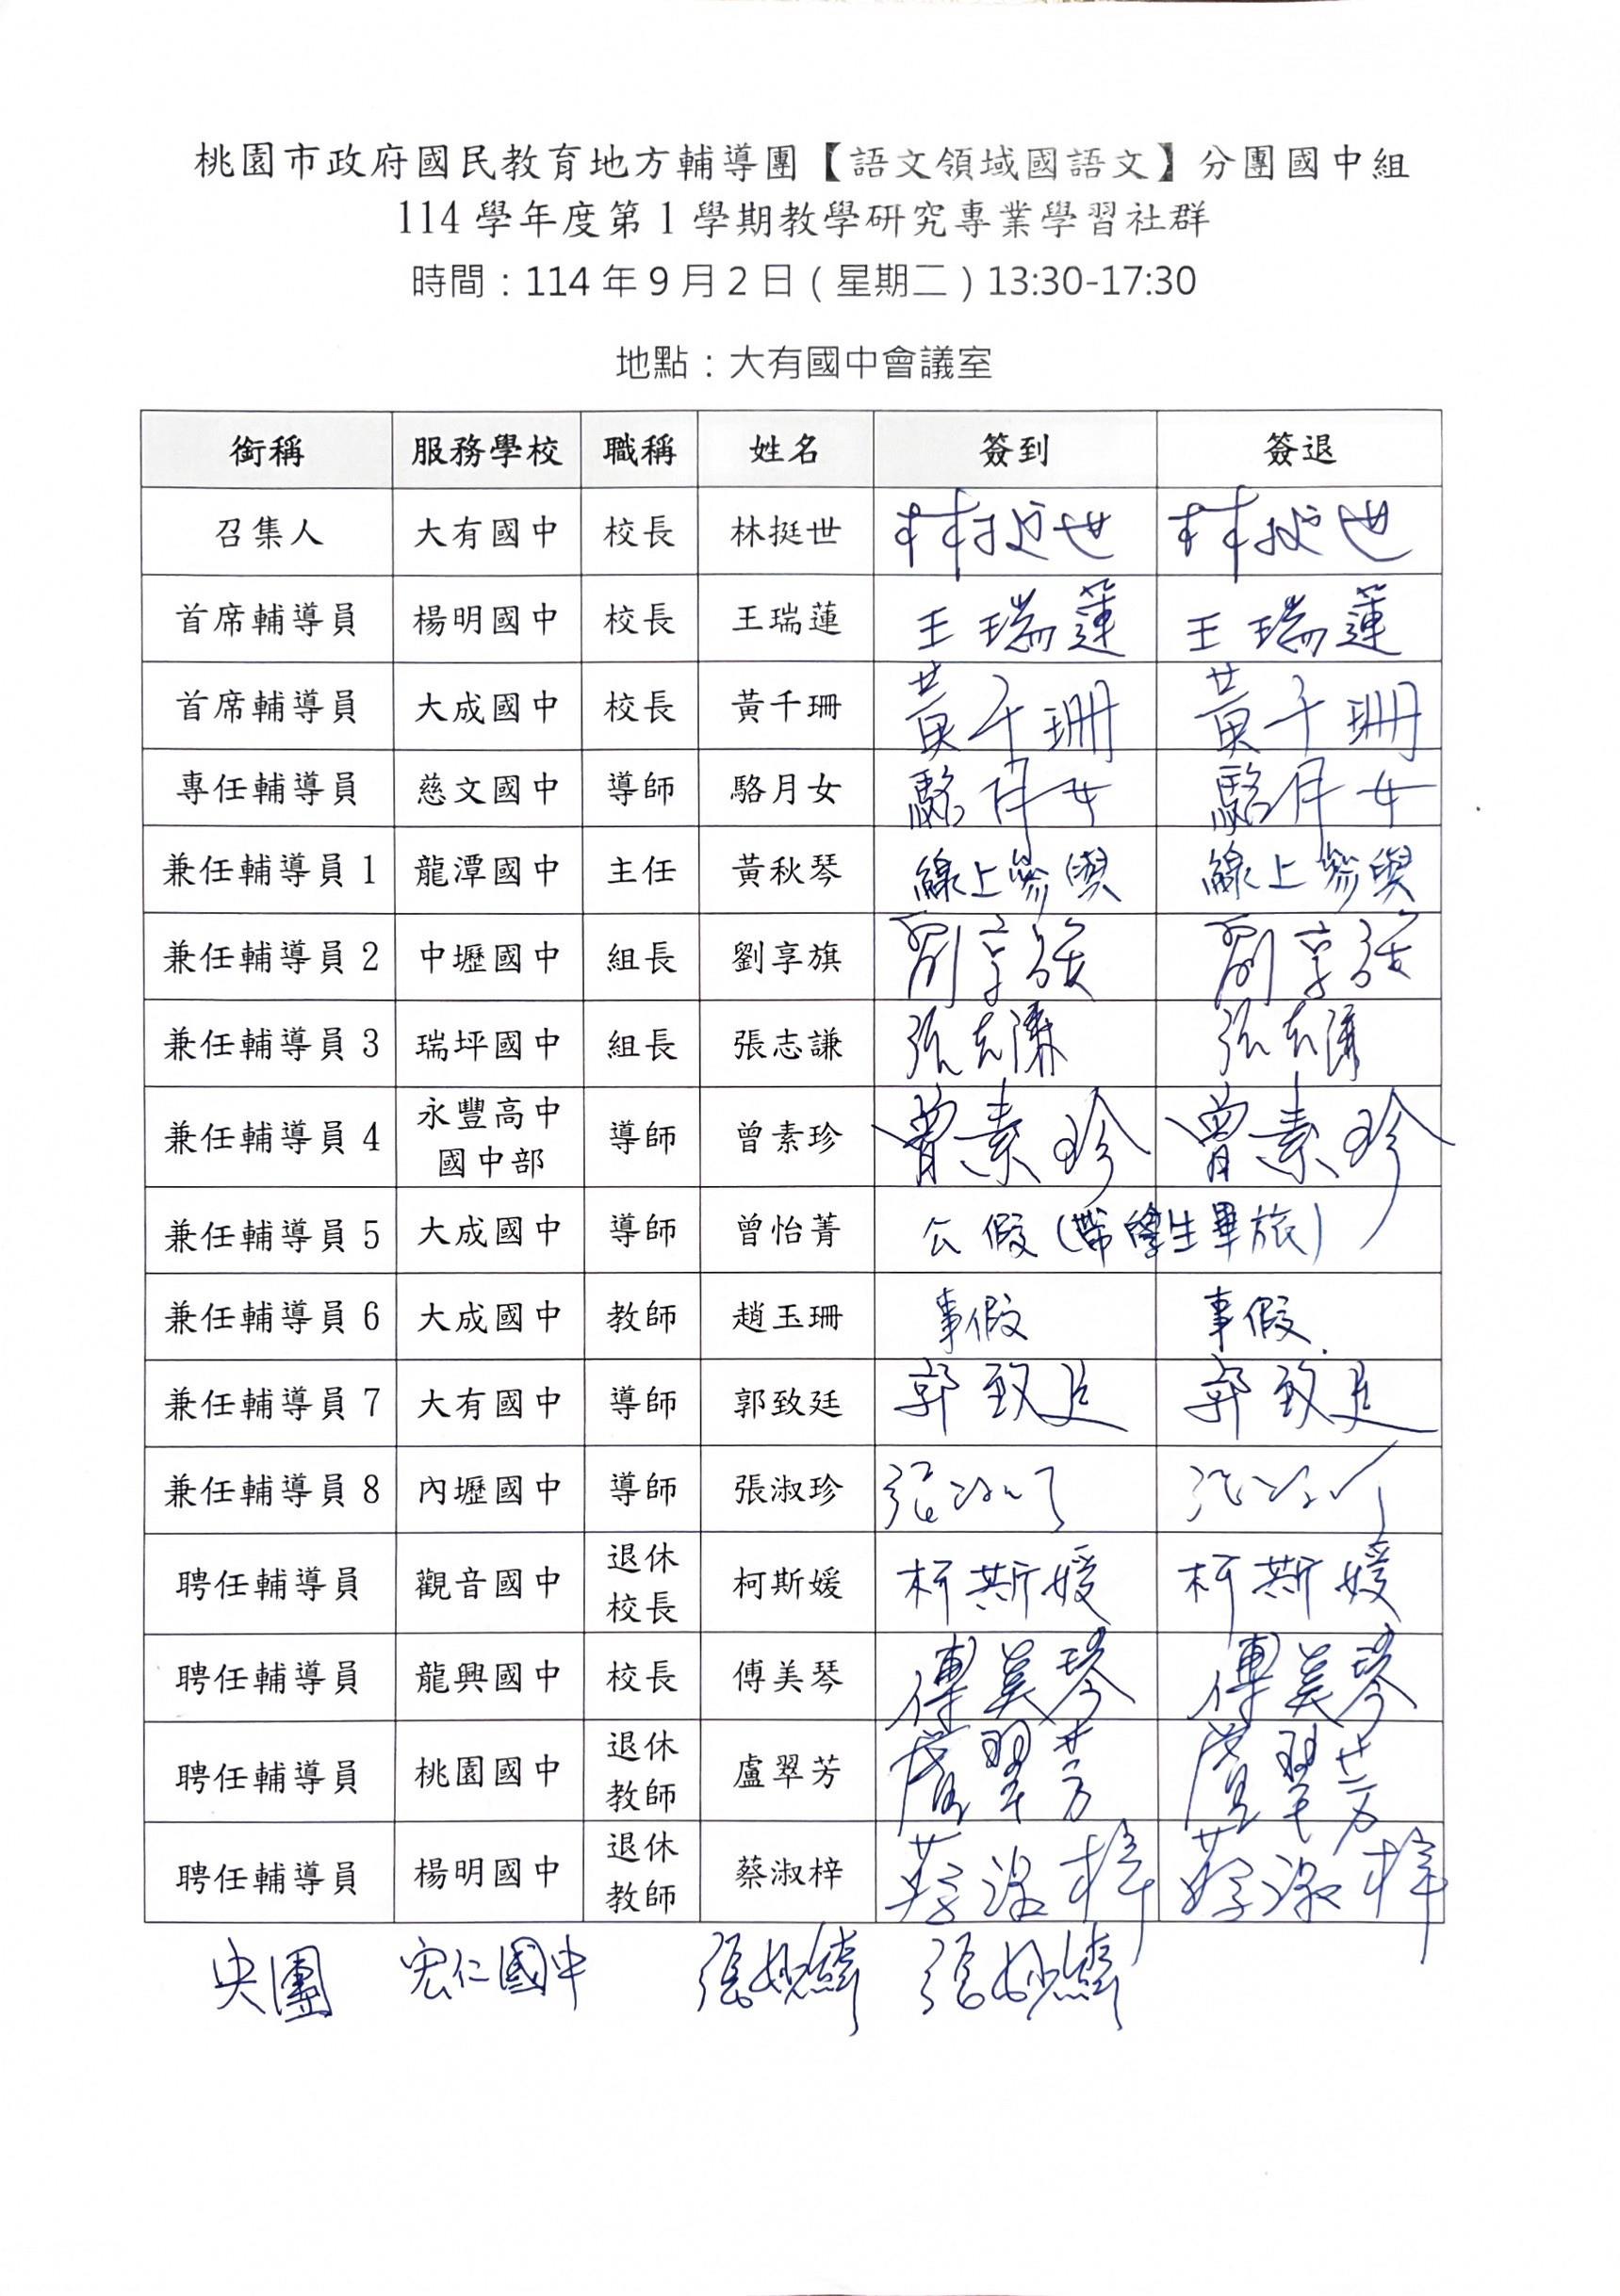 桃園市政府國民教育地方輔導團【語文領域國語文】分團國中組
114 學年度第 1 學期教學研究專業學習社群
時間：114 年 9 月 2 日（星期二）13:30-17:30
地點：大有國中會議室
銜稱 服務學校 職稱 姓名 簽到 簽退
召集人 大有國中 校長 林挺世 林挺世 林挺世
首席輔導員 楊明國中 校長 王瑞蓮 王瑞蓮 王瑞蓮
首席輔導員 大成國中 校長 黃千珊 黃千珊 黃千珊
專任輔導員 慈文國中 導師 駱月女 駱月女 駱月女
兼任輔導員 1 龍潭國中 主任 黃秋琴 線上參與 線上參與
兼任輔導員 2 中壢國中 組長 劉享旗 劉享旗 劉享旗
兼任輔導員 3 瑞坪國中 組長 張志謙 張志謙 張志謙
兼任輔導員 4 永豐高中 國中部 導師 曾素珍 曾素珍 曾素珍
兼任輔導員 5 大成國中 導師 曾怡菁 公假（帶學生畢旅）
兼任輔導員 6 大成國中 教師 趙玉珊 事假 事假.
兼任輔導員 7 大有國中 導師 郭致廷 郭致廷 郭致廷
兼任輔導員 8 內壢國中 導師 張淑珍 張淑珍 張淑珍
聘任輔導員 觀音國中 退休 校長 柯斯媛 柯斯媛 柯斯媛
聘任輔導員 龍興國中 校長 傅美琴 傅美琴 傅美琴
聘任輔導員 桃園國中 退休 教師 盧翠芳 盧翠芳 盧翠芳
聘任輔導員 楊明國中 退休 教師 蔡淑梓 蔡淑梓 蔡淑梓
央團 宏仁國中